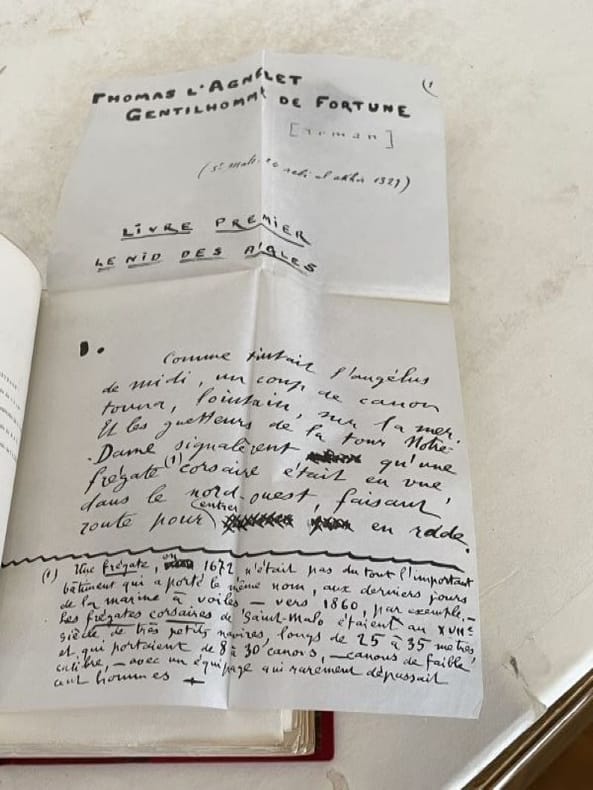 THOMAS L'AGNELET
(1
GENTILHOMME DE FORTUNE
[roman]
(St Malo. 20 rebi el akhir 1329)
LIVRE PREMIER
LE NID DES AIGLES
1.
Comme tintait l'angélus
de midi, un coup de canon
tonna, lointain, sur la mer.
Et les guetteurs de la tour Notre-
Dame signalèrent qu'une
frégate (1) corsaire était en vue,
dans le nord-ouest, faisant
route pour entrer en rade.
(1) Une frégate, en 1672 n'était pas du tout l'important
bâtiment qui a porté le même nom, aux derniers jours
de la marine à voiles – vers 1860, par exemple. –
Les frégates corsaires de Saint-Malo étaient au XVIIe
siècle de très petits navires, longs de 25 à 35 mètres,
et qui portaient de 8 à 30 canons, – canons de faible
calibre, – avec un équipage qui rarement dépassait
cent hommes –